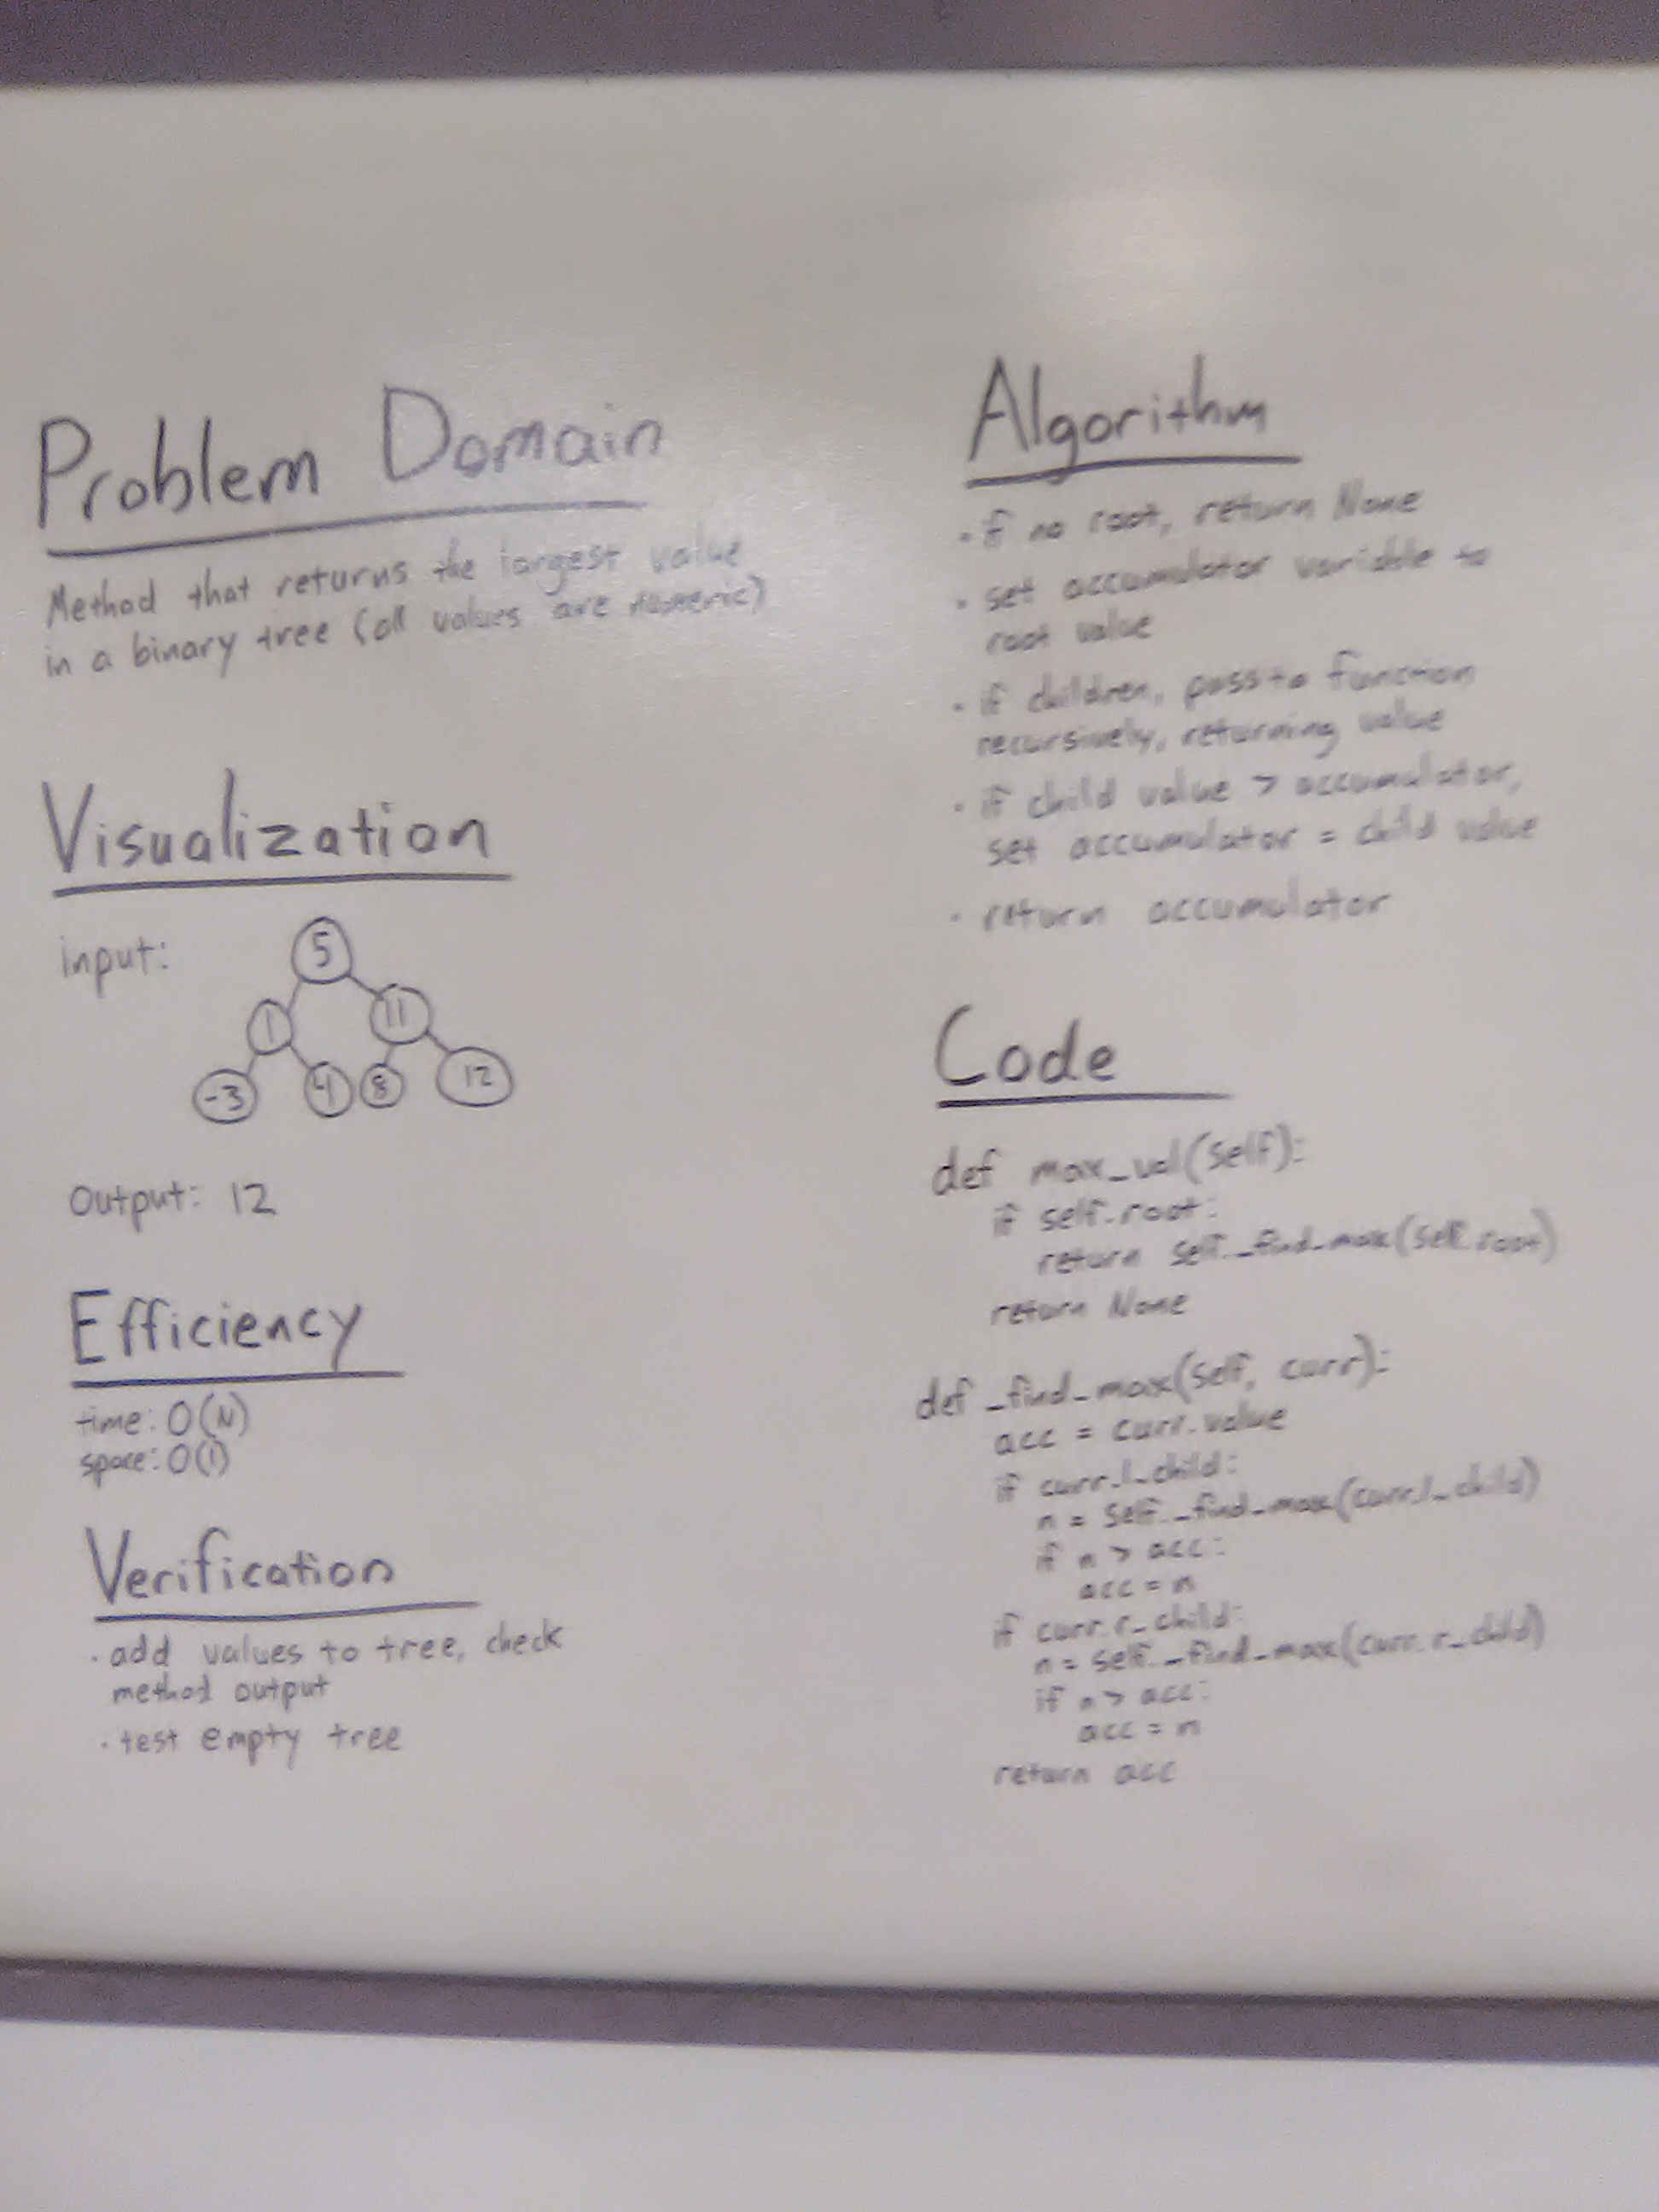 Problem Domain
Method that returns the largest value
in a binary tree (all values are numeric)
Visualization
input:
5
1
11
-3
4
8
12
Output: 12
Efficiency
time: O(N)
space: O(1)
Verification
· add values to tree, check
method output
· test empty tree
Algorithm
· if no root, return None
· set accumulator variable to
root value
· if children, pass to function
recursively, returning value
· if child value > accumulator,
set accumulator = child value
· return accumulator
Code
def max_val(self):
if self.root:
return self._find_max(self.root)
return None
def _find_max(self, curr):
acc = curr.value
if curr.l_child:
n = self._find_max(curr.l_child)
if n > acc:
acc = n
if curr.r_child:
n = self._find_max(curr.r_child)
if n > acc:
acc = n
return acc